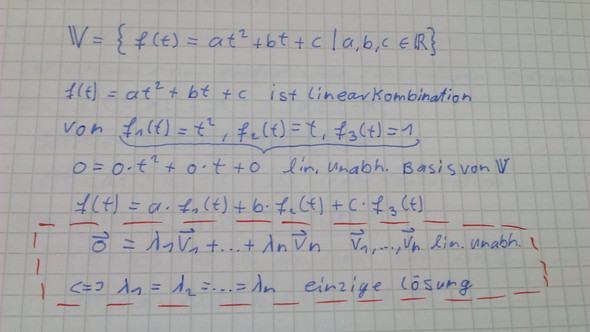 V = { f(t) = at² + bt + c | a, b, c ∈ ℝ}
f(t) = at² + bt + c ist Linearkombination
von f₁(t) = t², f₂(t) = t, f₃(t) = 1
0 = 0·t² + 0·t + 0 lin. unabh. Basis von V
f(t) = a·f₁(t) + b·f₂(t) + c·f₃(t)
0⃗ = λ₁v⃗₁ + ... + λₙv⃗ₙ v⃗₁, ..., v⃗ₙ lin. unabh.
<=> λ₁ = λ₂ = ... = λₙ einzige Lösung